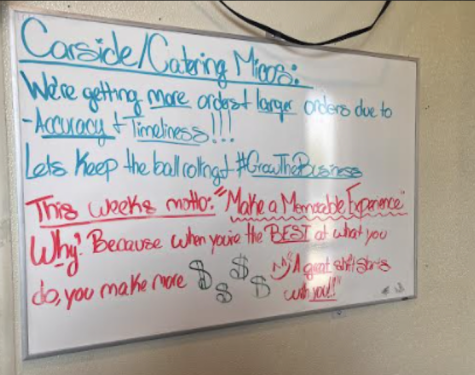 Carside/Catering Micros:
We're getting more orders + larger orders due to
-Accuracy + Timeliness!!!
Lets Keep the ball rolling! #GrowTheBusiness
This weeks motto: "Make a Memorable Experience"
Why? Because when you're the BEST at what you
do, you make more $ $ $ $
"A great shift starts
with you!!"